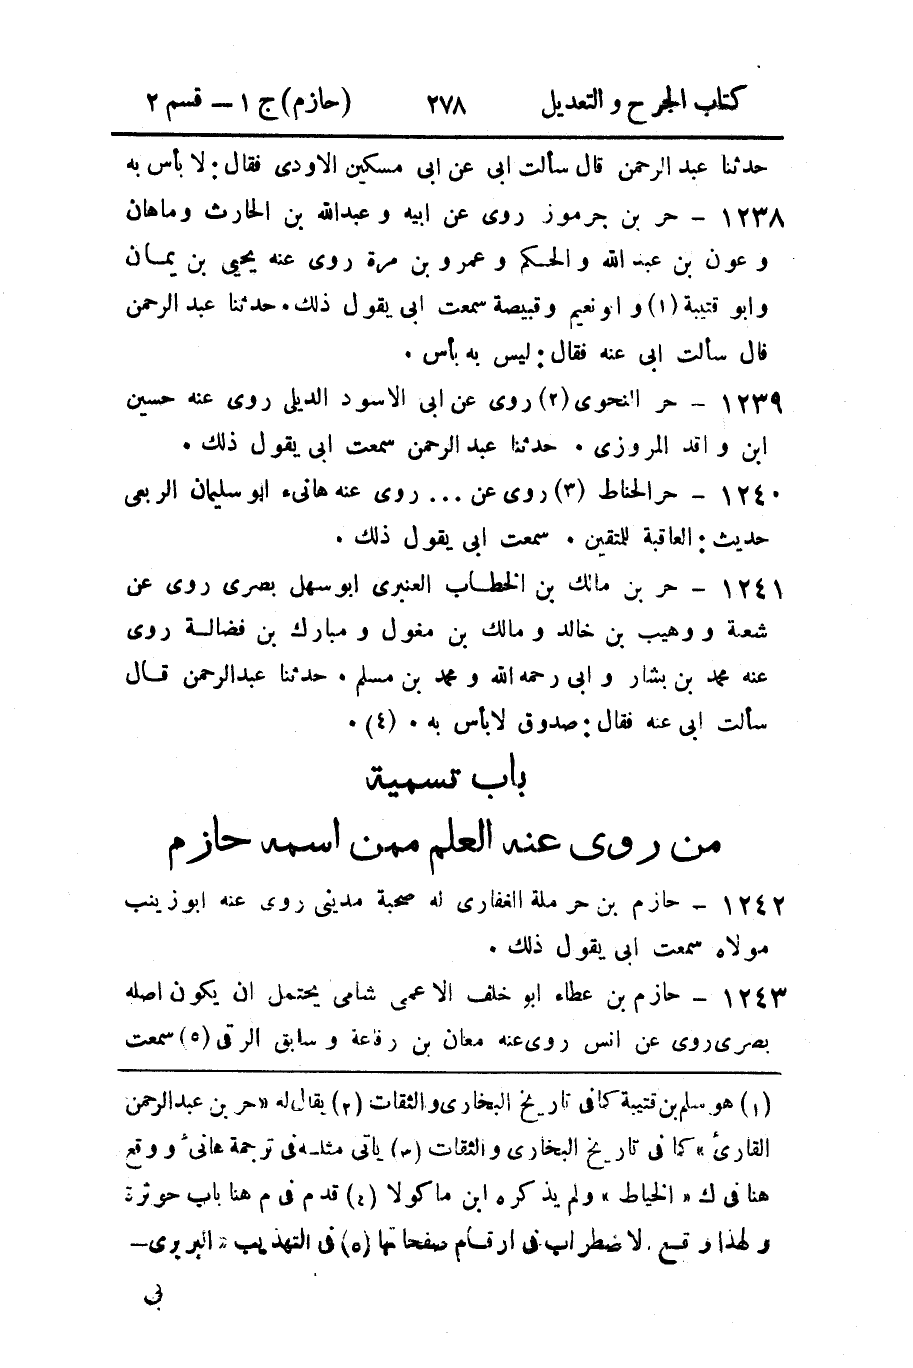 كتاب الجرح والتعديل ٢٧٨ (حازم) ج ١ – قسم ٢
حدثنا عبد الرحمن قال سألت ابى عن ابى مسكين الاودى فقال: لا بأس به
١٢٣٨ – حر بن جرموز روى عن ابيه و عبدالله بن الحارث وماهان
و عون بن عبد الله و الحكم و عمرو بن مرة روى عنه يحيى بن يمان
وابو قتيبة (١) و ابو نعيم وقبيصة سمعت ابى يقول ذلك. حدثنا عبد الرحمن
قال سألت ابى عنه فقال: ليس به بأس .
١٢٣٩ – حر النحوى (٢) روى عن ابى الاسود الديلى روى عنه حسين
ابن واقد المروزى . حدثنا عبد الرحمن سمعت ابى يقول ذلك .
١٢٤٠ – حر الحناط (٣) روى عن ... روى عنه هانىء ابو سليمان الربعى
حديث: العاقبة للمتقين . سمعت ابى يقول ذلك .
١٢٤١ – حر بن مالك بن الخطاب العنبرى ابوسهل بصرى روى عن
شعبة و وهيب بن خالد و مالك بن مغول و مبارك بن فضالة روى
عنه محمد بن بشار و ابى رحمه الله و محمد بن مسلم . حدثنا عبدالرحمن قال
سألت ابى عنه فقال: صدوق لابأس به . (٤) .
باب تسمية
من روى عنه العلم ممن اسمه حازم
١٢٤٢ – حازم بن حرملة الغفارى له صحبة مدينى روى عنه ابوزينب
مولاه سمعت ابى يقول ذلك .
١٢٤٣ – حازم بن عطاء ابو خلف الاعمى شامى يحتمل ان يكون اصله
بصرى روى عن انس روى عنه معان بن رفاعة و سابق الرقى (٥) سمعت
(١) هو سلم بن قتيبة كما فى تاريخ البخارى والثقات (٢) يقال له «حر بن عبدالرحمن
القارئ» كما فى تاريخ البخارى والثقات (٣) يأتى مثله فى ترجمة هانئ و وقع
هنا فى ك «الخياط» ولم يذكره ابن ماكولا (٤) قدم فى م هنا باب حوثرة
ولهذا وقع الاضطراب فى ارقام صفحاتها (٥) فى التهذيب « البربرى –
بى